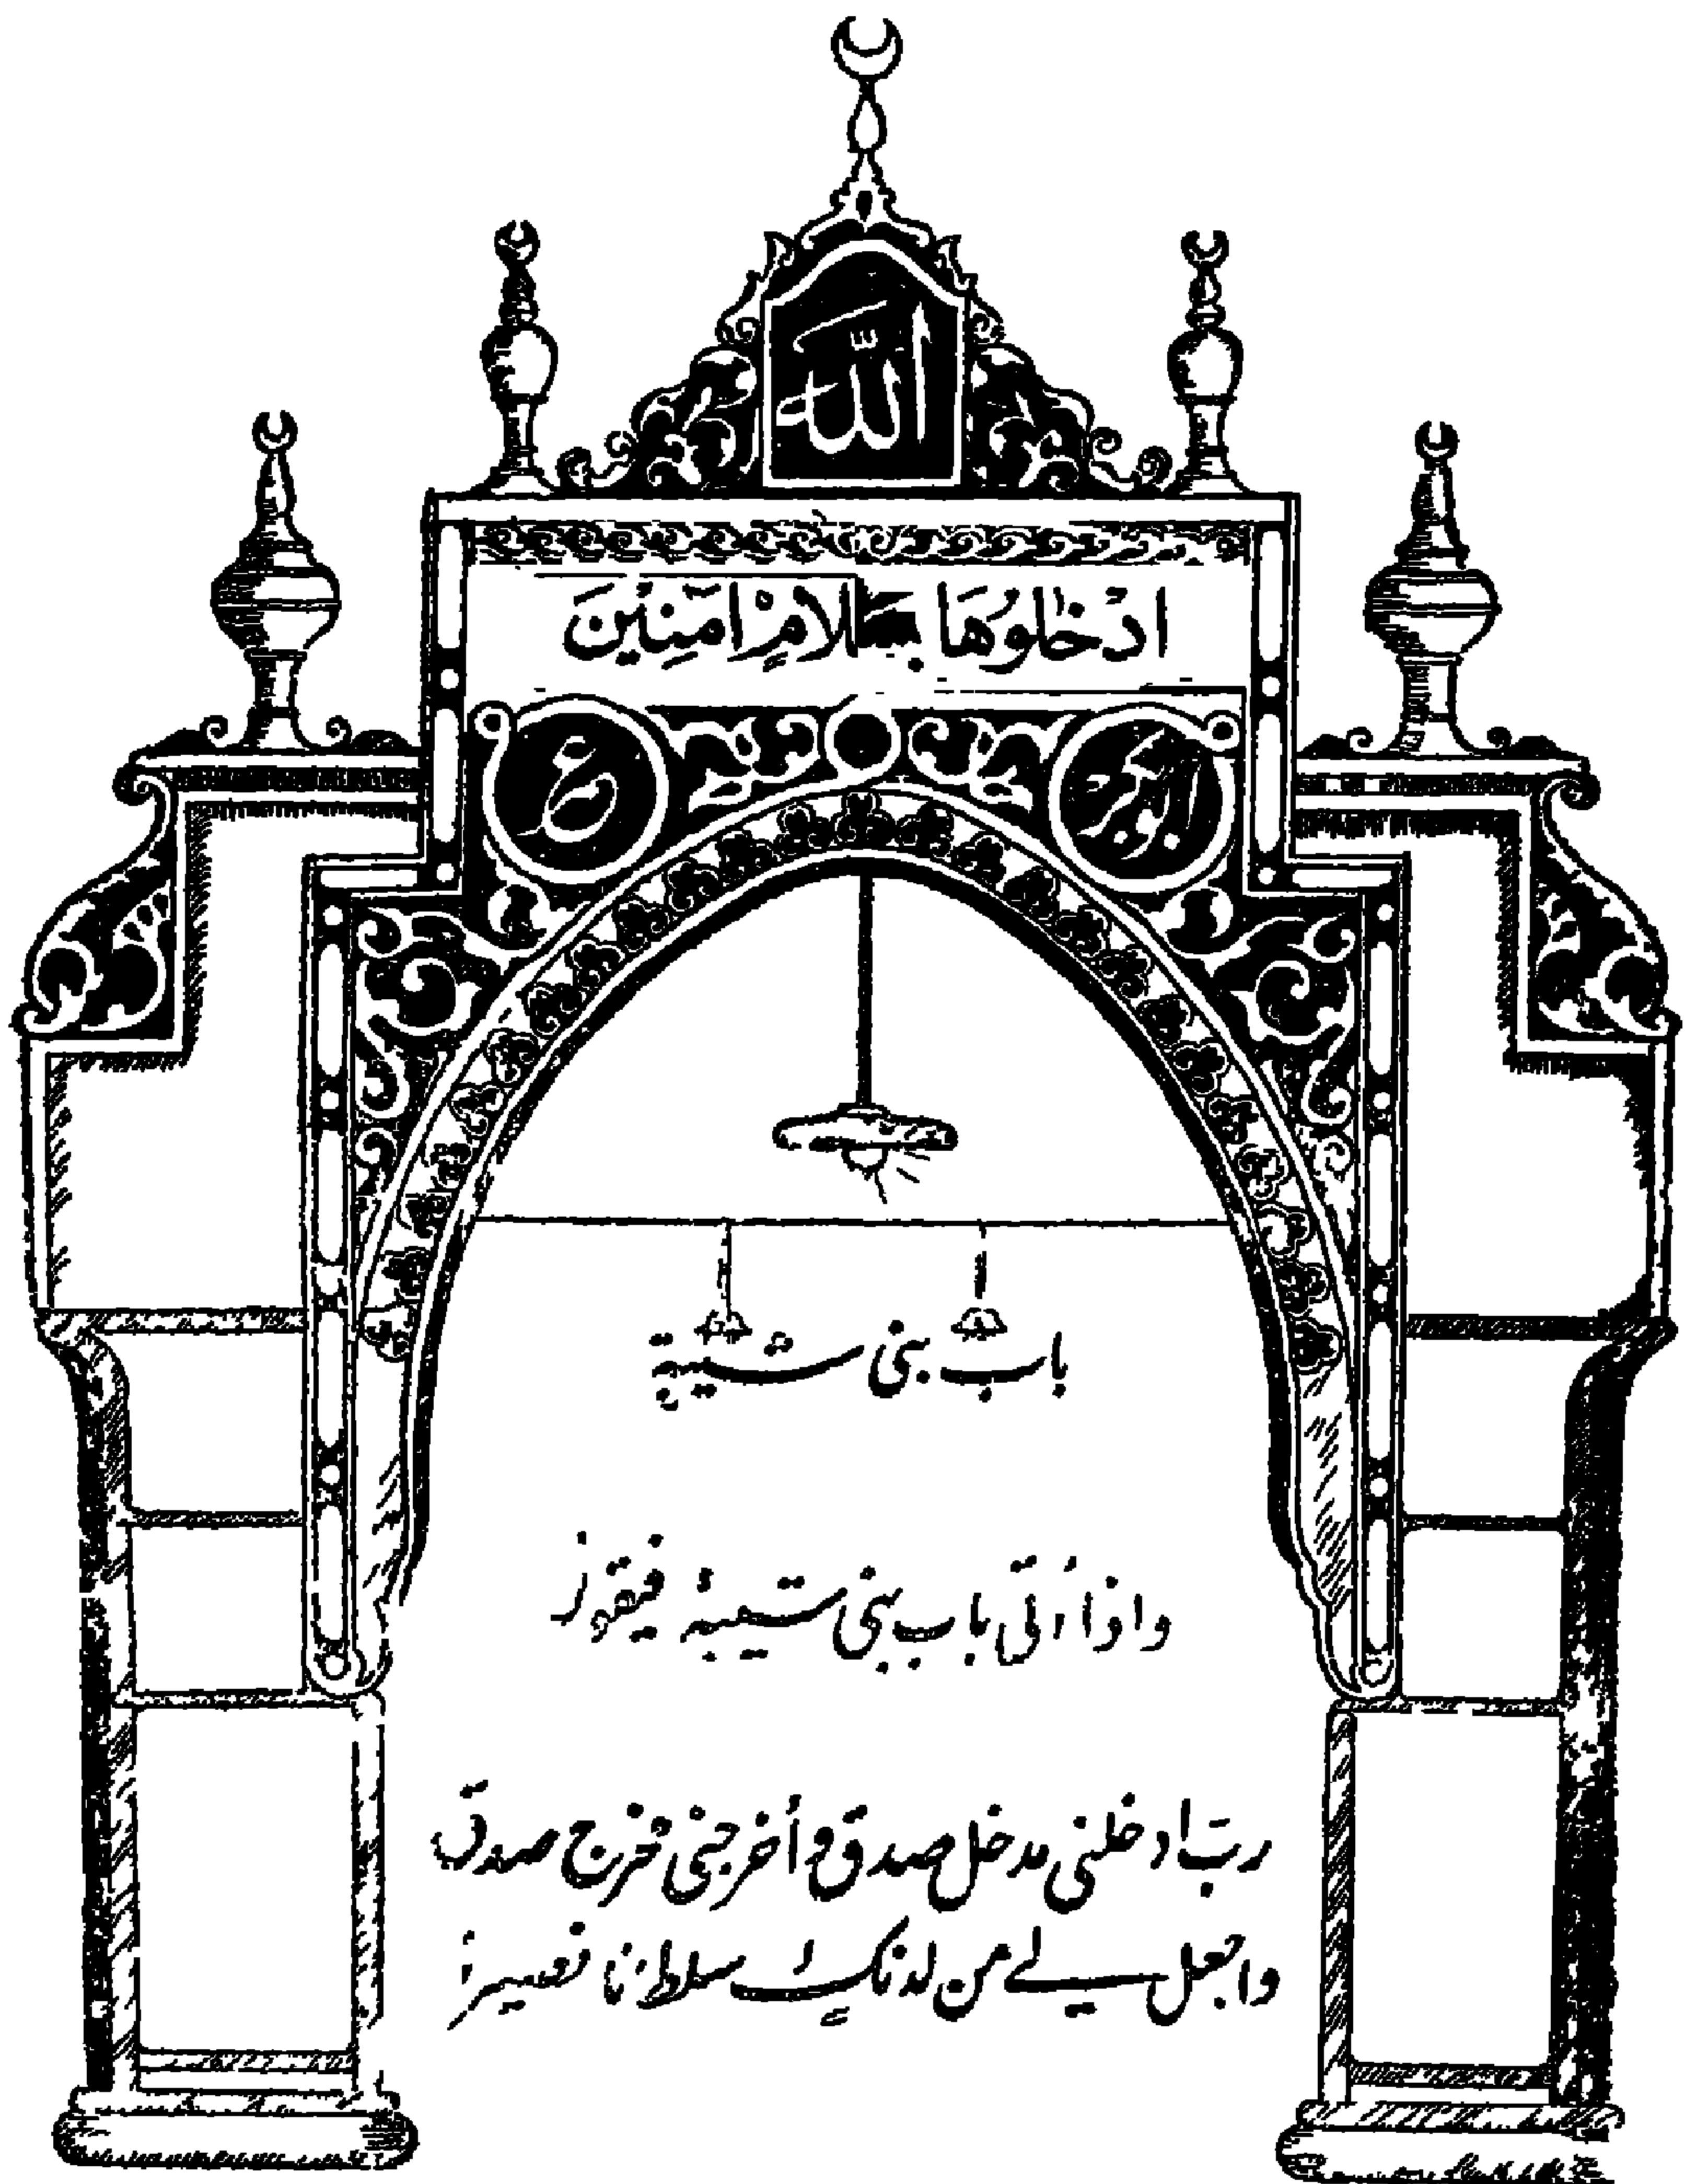 الله
ادْخُلُوهَا بِسَلَامٍ آمِنِينَ
باب بنى شيبة
واذا أتى باب بنى شيبة فيقول
رب ادخلنى مدخل صدق وأخرجنى مخرج صدق
واجعل لے من لدنك سلطانا نصيرا